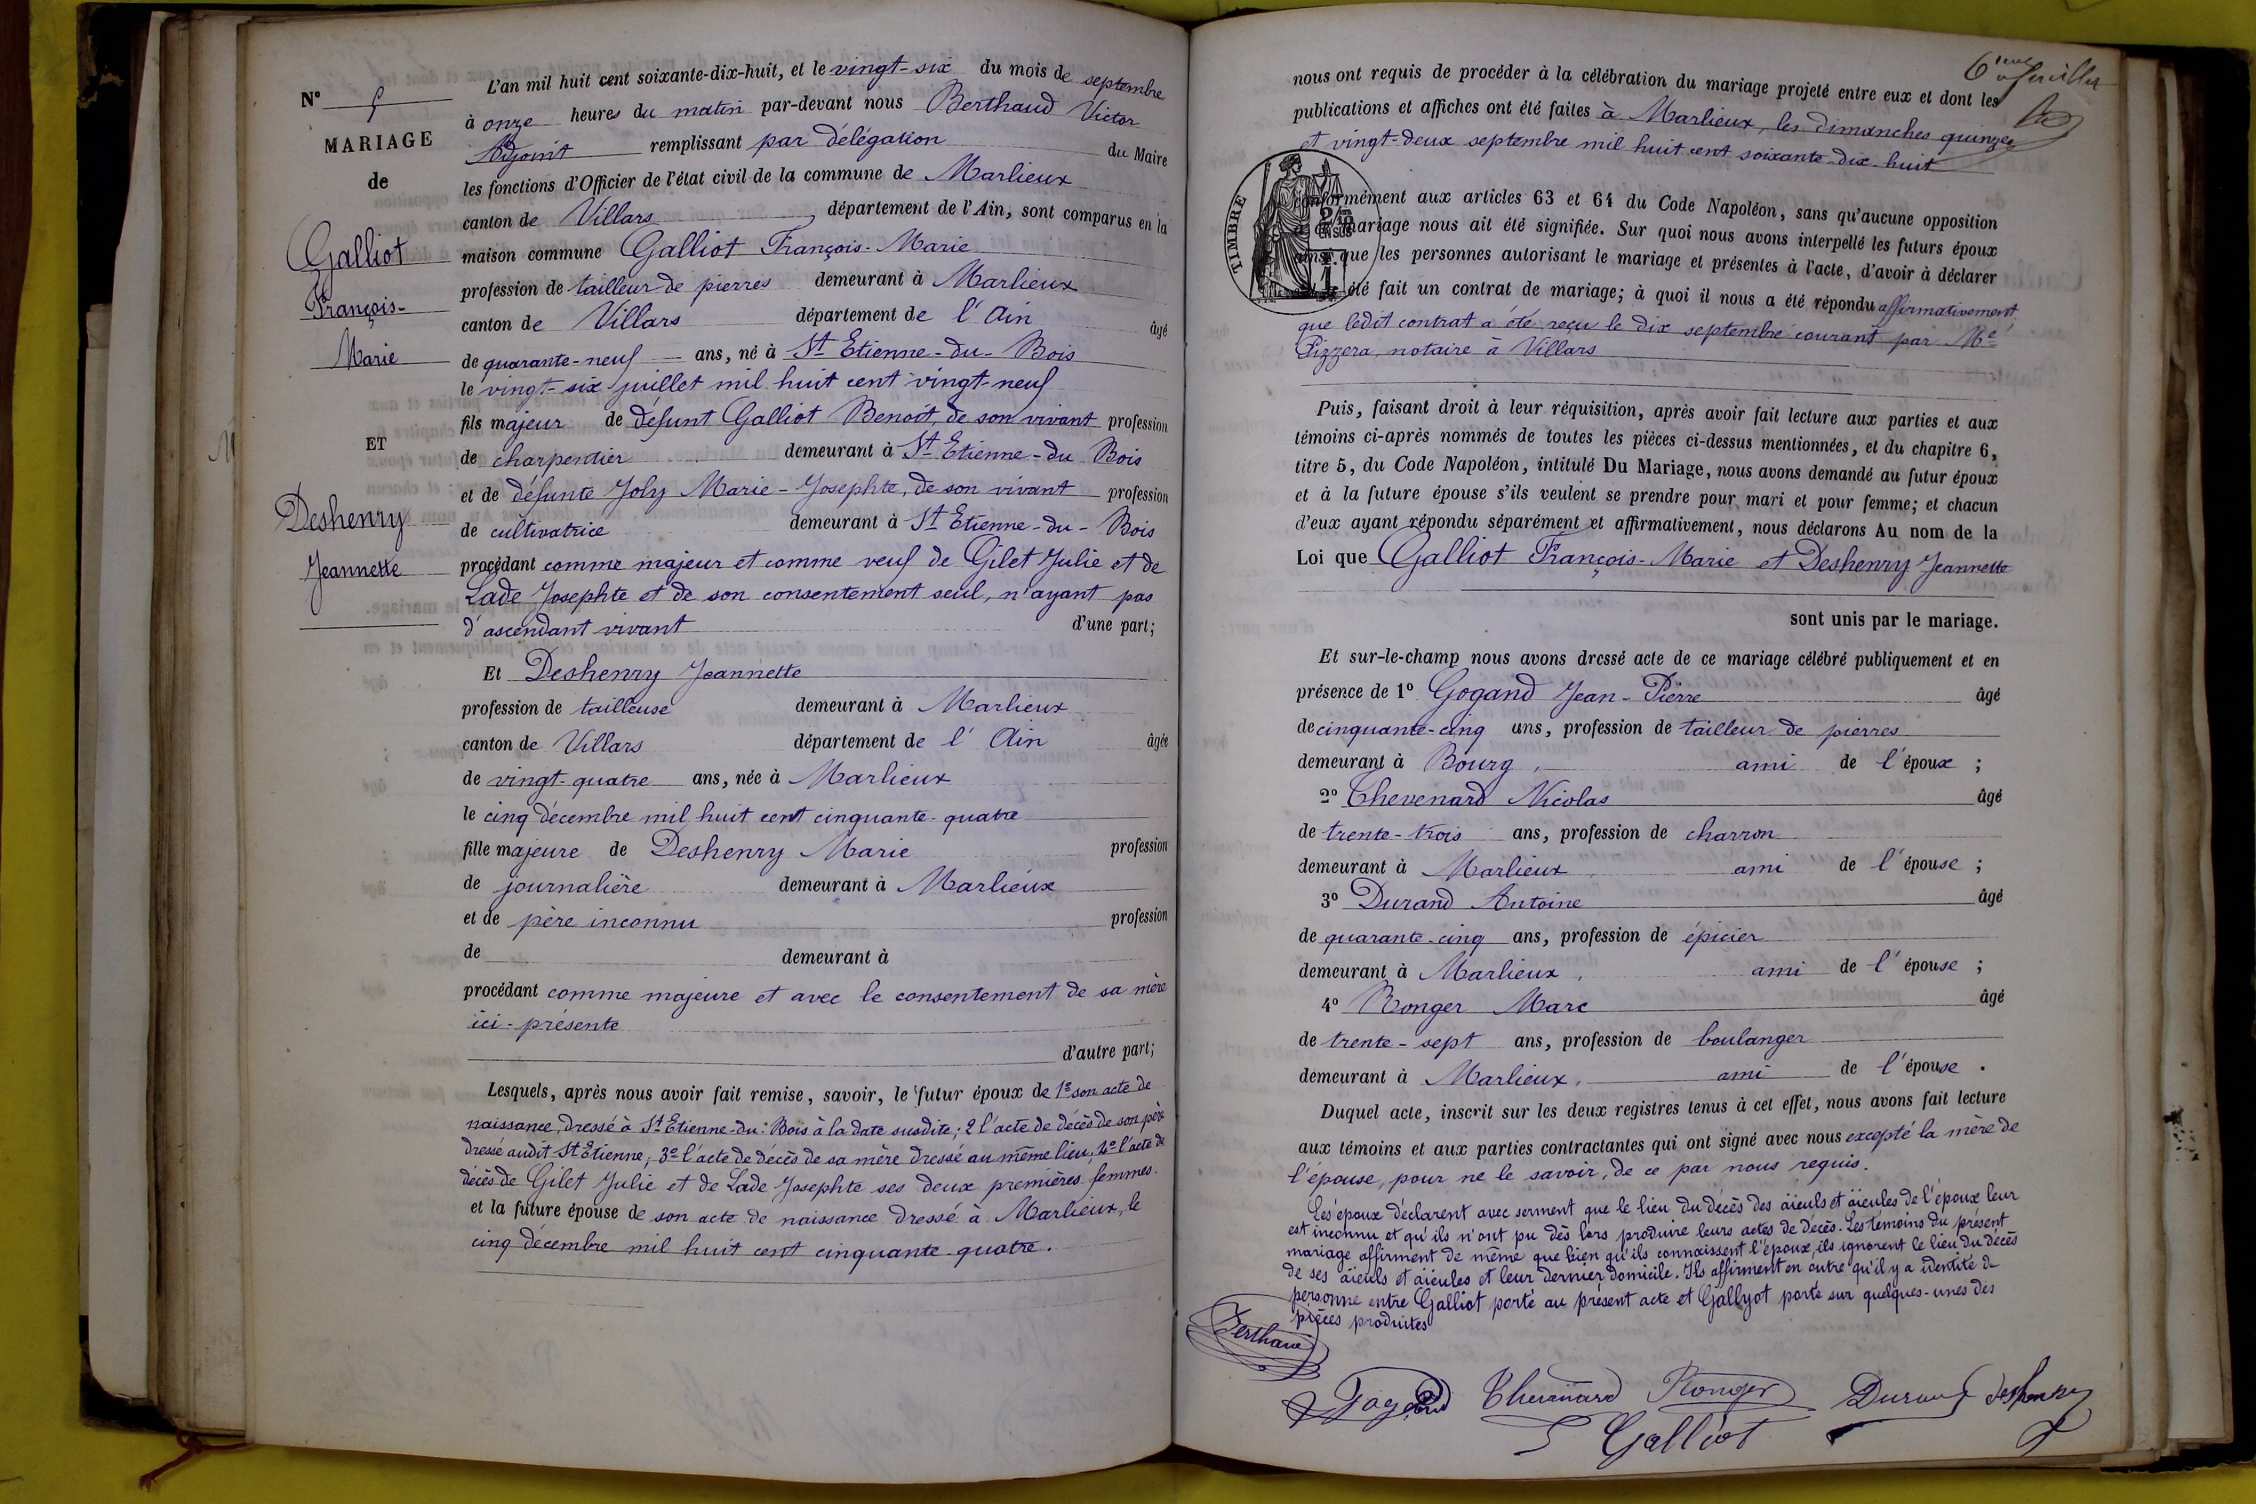 N° 5
MARIAGE
de
Galliot
François-
Marie
ET
Deshenry
Jeannette
L'an mil huit cent soixante-dix-huit, et le vingt-six du mois de septembre
à onze heures du matin par-devant nous Berthaud Victor
Adjoint remplissant par délégation du Maire
les fonctions d'Officier de l'état civil de la commune de Marlieux
canton de Villars, département de l'Ain, sont comparus en la
maison commune Galliot François-Marie
profession de tailleur de pierres demeurant à Marlieux
canton de Villars département de l'Ain âgé
de quarante-neuf ans, né à St Etienne-du-Bois
le vingt-six juillet mil huit cent vingt-neuf
fils majeur de défunt Galliot Benoît, de son vivant profession
de charpentier demeurant à St Etienne-du Bois
et de défunte Joly Marie-Josephte, de son vivant profession
de cultivatrice demeurant à St Etienne-du-Bois
procédant comme majeur et comme veuf de Gilet Julie et de
Lade Josephte et de son consentement seul, n'ayant pas
d'ascendant vivant d'une part;
Et Deshenry Jeannette
profession de tailleuse demeurant à Marlieux
canton de Villars département de l'Ain âgée
de vingt-quatre ans, née à Marlieux
le cinq décembre mil huit cent cinquante-quatre
fille majeure de Deshenry Marie profession
de journalière demeurant à Marlieux
et de père inconnu profession
de demeurant à
procédant comme majeure et avec le consentement de sa mère
ici-présente
d'autre part;
Lesquels, après nous avoir fait remise, savoir, le futur époux de 1° son acte de
naissance, dressé à St Etienne-du-Bois à la date susdite; 2 l'acte de décès de son père
dressé audit St Etienne; 3° l'acte de décès de sa mère dressé au même lieu, 4° l'acte de
décès de Gilet Julie et de Lade Josephte ses deux premières femmes.
et la future épouse de son acte de naissance dressé à Marlieux, le
cinq décembre mil huit cent cinquante-quatre.
6ième feuillet
nous ont requis de procéder à la célébration du mariage projeté entre eux et dont les
publications et affiches ont été faites à Marlieux, les dimanches quinze
et vingt-deux septembre mil huit cent soixante-dix-huit
TIMBRE
2/10
EN SUS
conformément aux articles 63 et 64 du Code Napoléon, sans qu'aucune opposition
à ce mariage nous ait été signifiée. Sur quoi nous avons interpellé les futurs époux
ainsi que les personnes autorisant le mariage et présentes à l'acte, d'avoir à déclarer
été fait un contrat de mariage; à quoi il nous a été répondu affirmativement
que ledit contrat a été reçu le dix septembre courant par Me
Pizzera, notaire à Villars
Puis, faisant droit à leur réquisition, après avoir fait lecture aux parties et aux
témoins ci-après nommés de toutes les pièces ci-dessus mentionnées, et du chapitre 6,
titre 5, du Code Napoléon, intitulé Du Mariage, nous avons demandé au futur époux
et à la future épouse s'ils veulent se prendre pour mari et pour femme; et chacun
d'eux ayant répondu séparément et affirmativement, nous déclarons Au nom de la
Loi que Galliot François-Marie et Deshenry Jeannette
sont unis par le mariage.
Et sur-le-champ nous avons dressé acte de ce mariage célébré publiquement et en
présence de 1° Gogand Jean-Pierre âgé
de cinquante-cinq ans, profession de tailleur de pierres
demeurant à Bourg, ami de l'époux ;
2° Thevenard Nicolas âgé
de trente-trois ans, profession de charron
demeurant à Marlieux, ami de l'épouse ;
3° Durand Antoine âgé
de quarante-cinq ans, profession de épicier
demeurant à Marlieux, ami de l'épouse ;
4° Ronger Marc âgé
de trente-sept ans, profession de boulanger
demeurant à Marlieux, ami de l'épouse .
Duquel acte, inscrit sur les deux registres tenus à cet effet, nous avons fait lecture
aux témoins et aux parties contractantes qui ont signé avec nous excepté la mère de
l'épouse, pour ne le savoir, de ce par nous requis.
Les époux déclarent avec serment que le lieu du décès des aïeuls et aïeules de l'époux leur
est inconnu et qu'ils n'ont pu dès lors produire leurs actes de décès. Les témoins du présent
mariage affirment de même que bien qu'ils connaissent l'époux, ils ignorent le lieu du décès
de ses aïeuls et aïeules et leur dernier domicile. Ils affirment en outre qu'il y a identité de
personne entre Galliot porté au présent acte et Gallyot porté sur quelques-unes des
pièces produites
Berthaud
Gogand Thevenard Ronger Durand Deshenry
Galliot